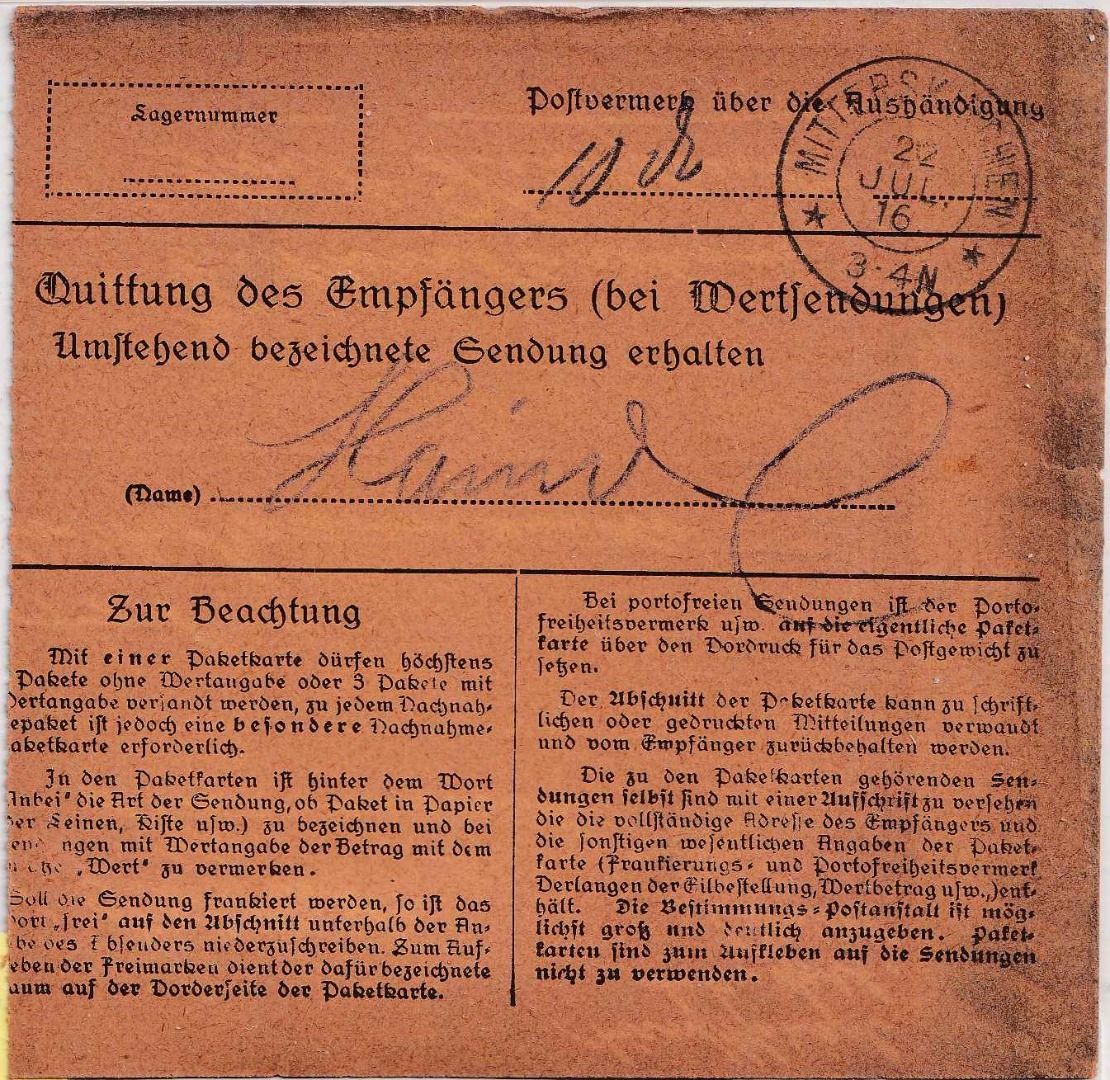 Lagernummer
Postvermerk über die Aushändigung
22
JUL.
16.
3-4N
Quittung des Empfängers (bei Wertsendungen)
Umstehend bezeichnete Sendung erhalten
(Name)
Zur Beachtung
Mit einer Paketkarte dürfen höchstens
Pakete ohne Wertangabe oder 3 Pakete mit
Wertangabe versandt werden, zu jedem Nachnah-
epaket ist jedoch eine besondere Nachnahme-
aketkarte erforderlich.
In den Paketkarten ist hinter dem Wort
Anbei" die Art der Sendung, ob Paket in Papier
er Leinen, Kiste usw.) zu bezeichnen und bei
ngen mit Wertangabe der Betrag mit dem
„Wert" zu vermerken.
Soll die Sendung frankiert werden, so ist das
ort „frei" auf den Abschnitt unterhalb der An-
be des Absenders niederzuschreiben. Zum Auf-
eben der Freimarken dient der dafür bezeichnete
aum auf der Vorderseite der Paketkarte.
Bei portofreien Sendungen ist der Porto-
freiheitsvermerk usw. auf die eigentliche Paket-
karte über den Vordruck für das Postgewicht zu
setzen.
Der Abschnitt der Paketkarte kann zu schrift-
lichen oder gedruckten Mitteilungen verwandt
und vom Empfänger zurückbehalten werden.
Die zu den Paketkarten gehörenden Sen-
dungen selbst sind mit einer Aufschrift zu versehen
die die vollständige Adresse des Empfängers und
die sonstigen wesentlichen Angaben der Paket-
karte (Frankierungs- und Portofreiheitsvermerk
Verlangen der Eilbestellung, Wertbetrag usw.,) ent-
hält. Die Bestimmungs-Postanstalt ist mög-
lichst groß und deutlich anzugeben. Paket-
karten sind zum Aufkleben auf die Sendungen
nicht zu verwenden.